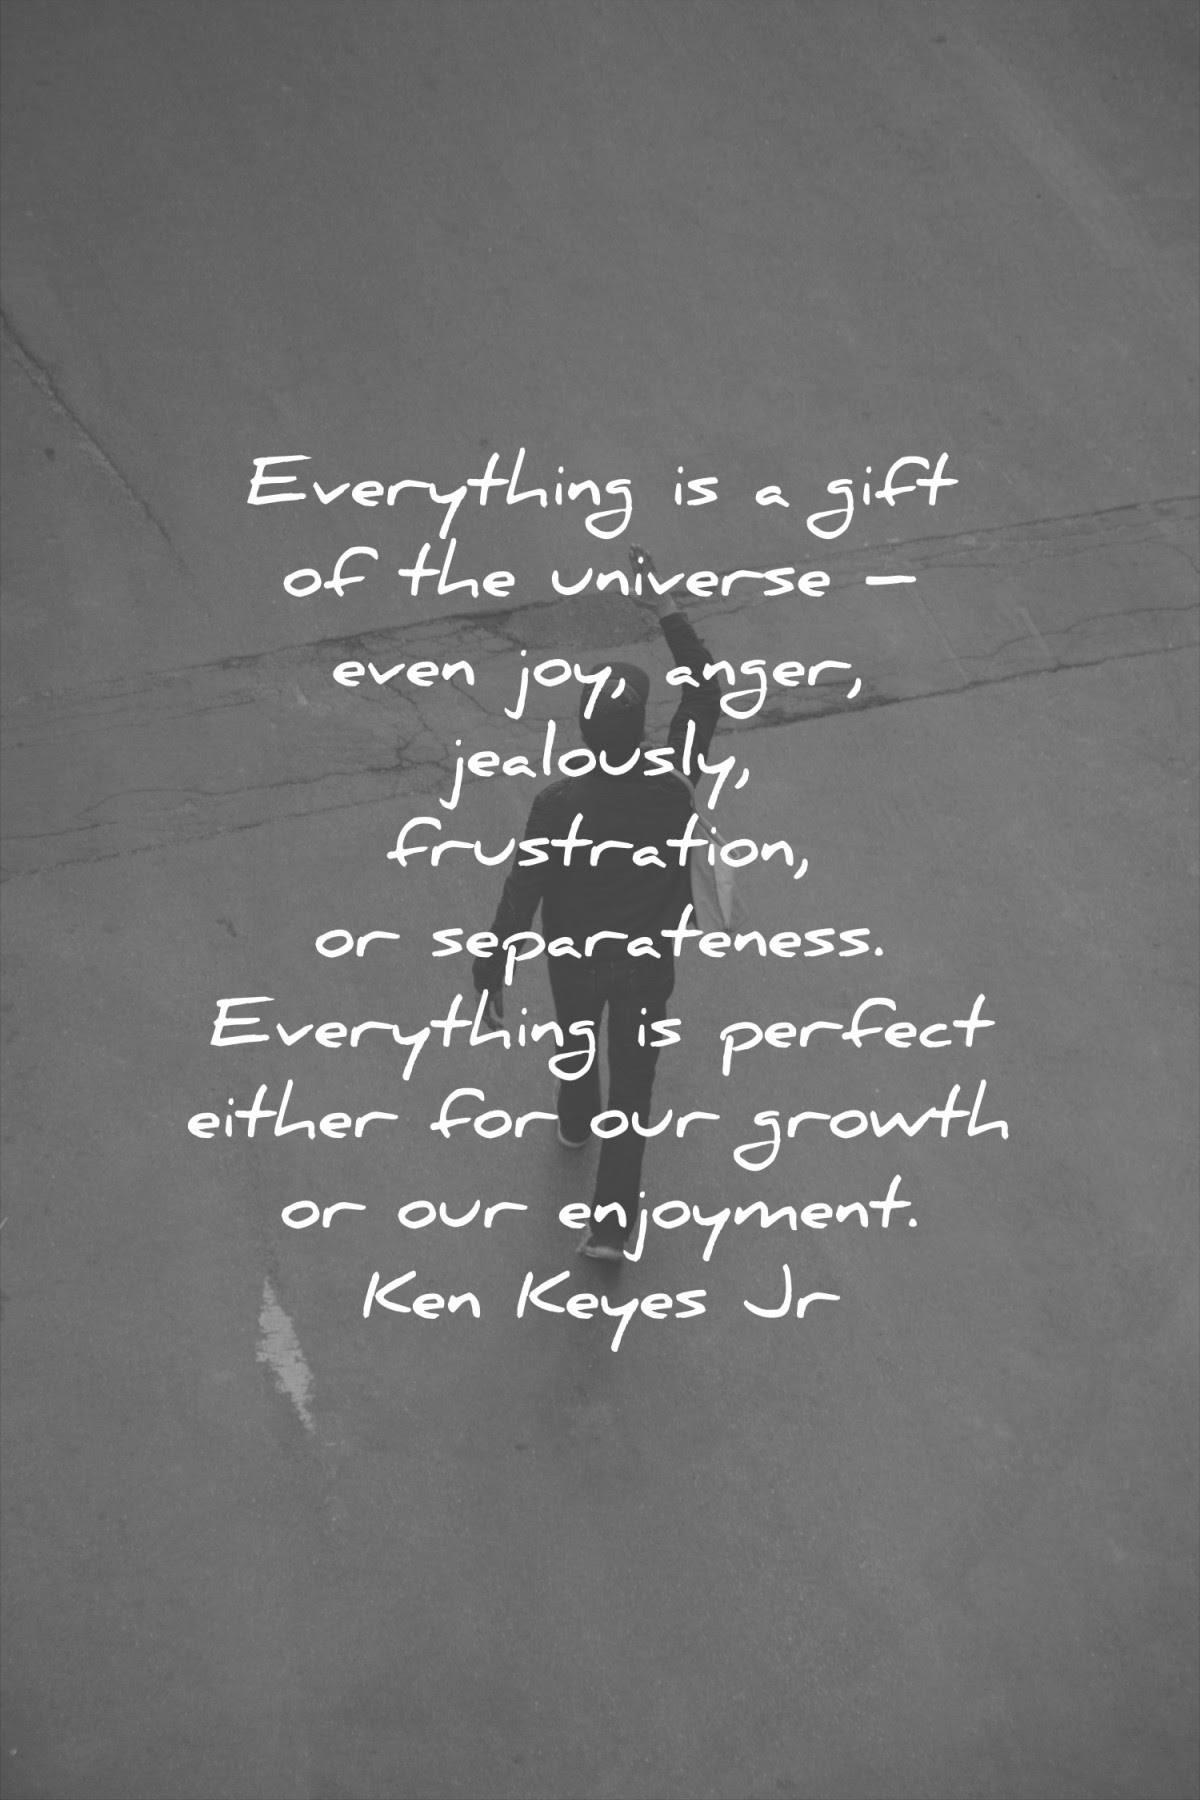 Everything is a gift
of the universe –
even joy, anger,
jealously,
frustration,
or separateness.
Everything is perfect
either for our growth
or our enjoyment.
Ken Keyes Jr